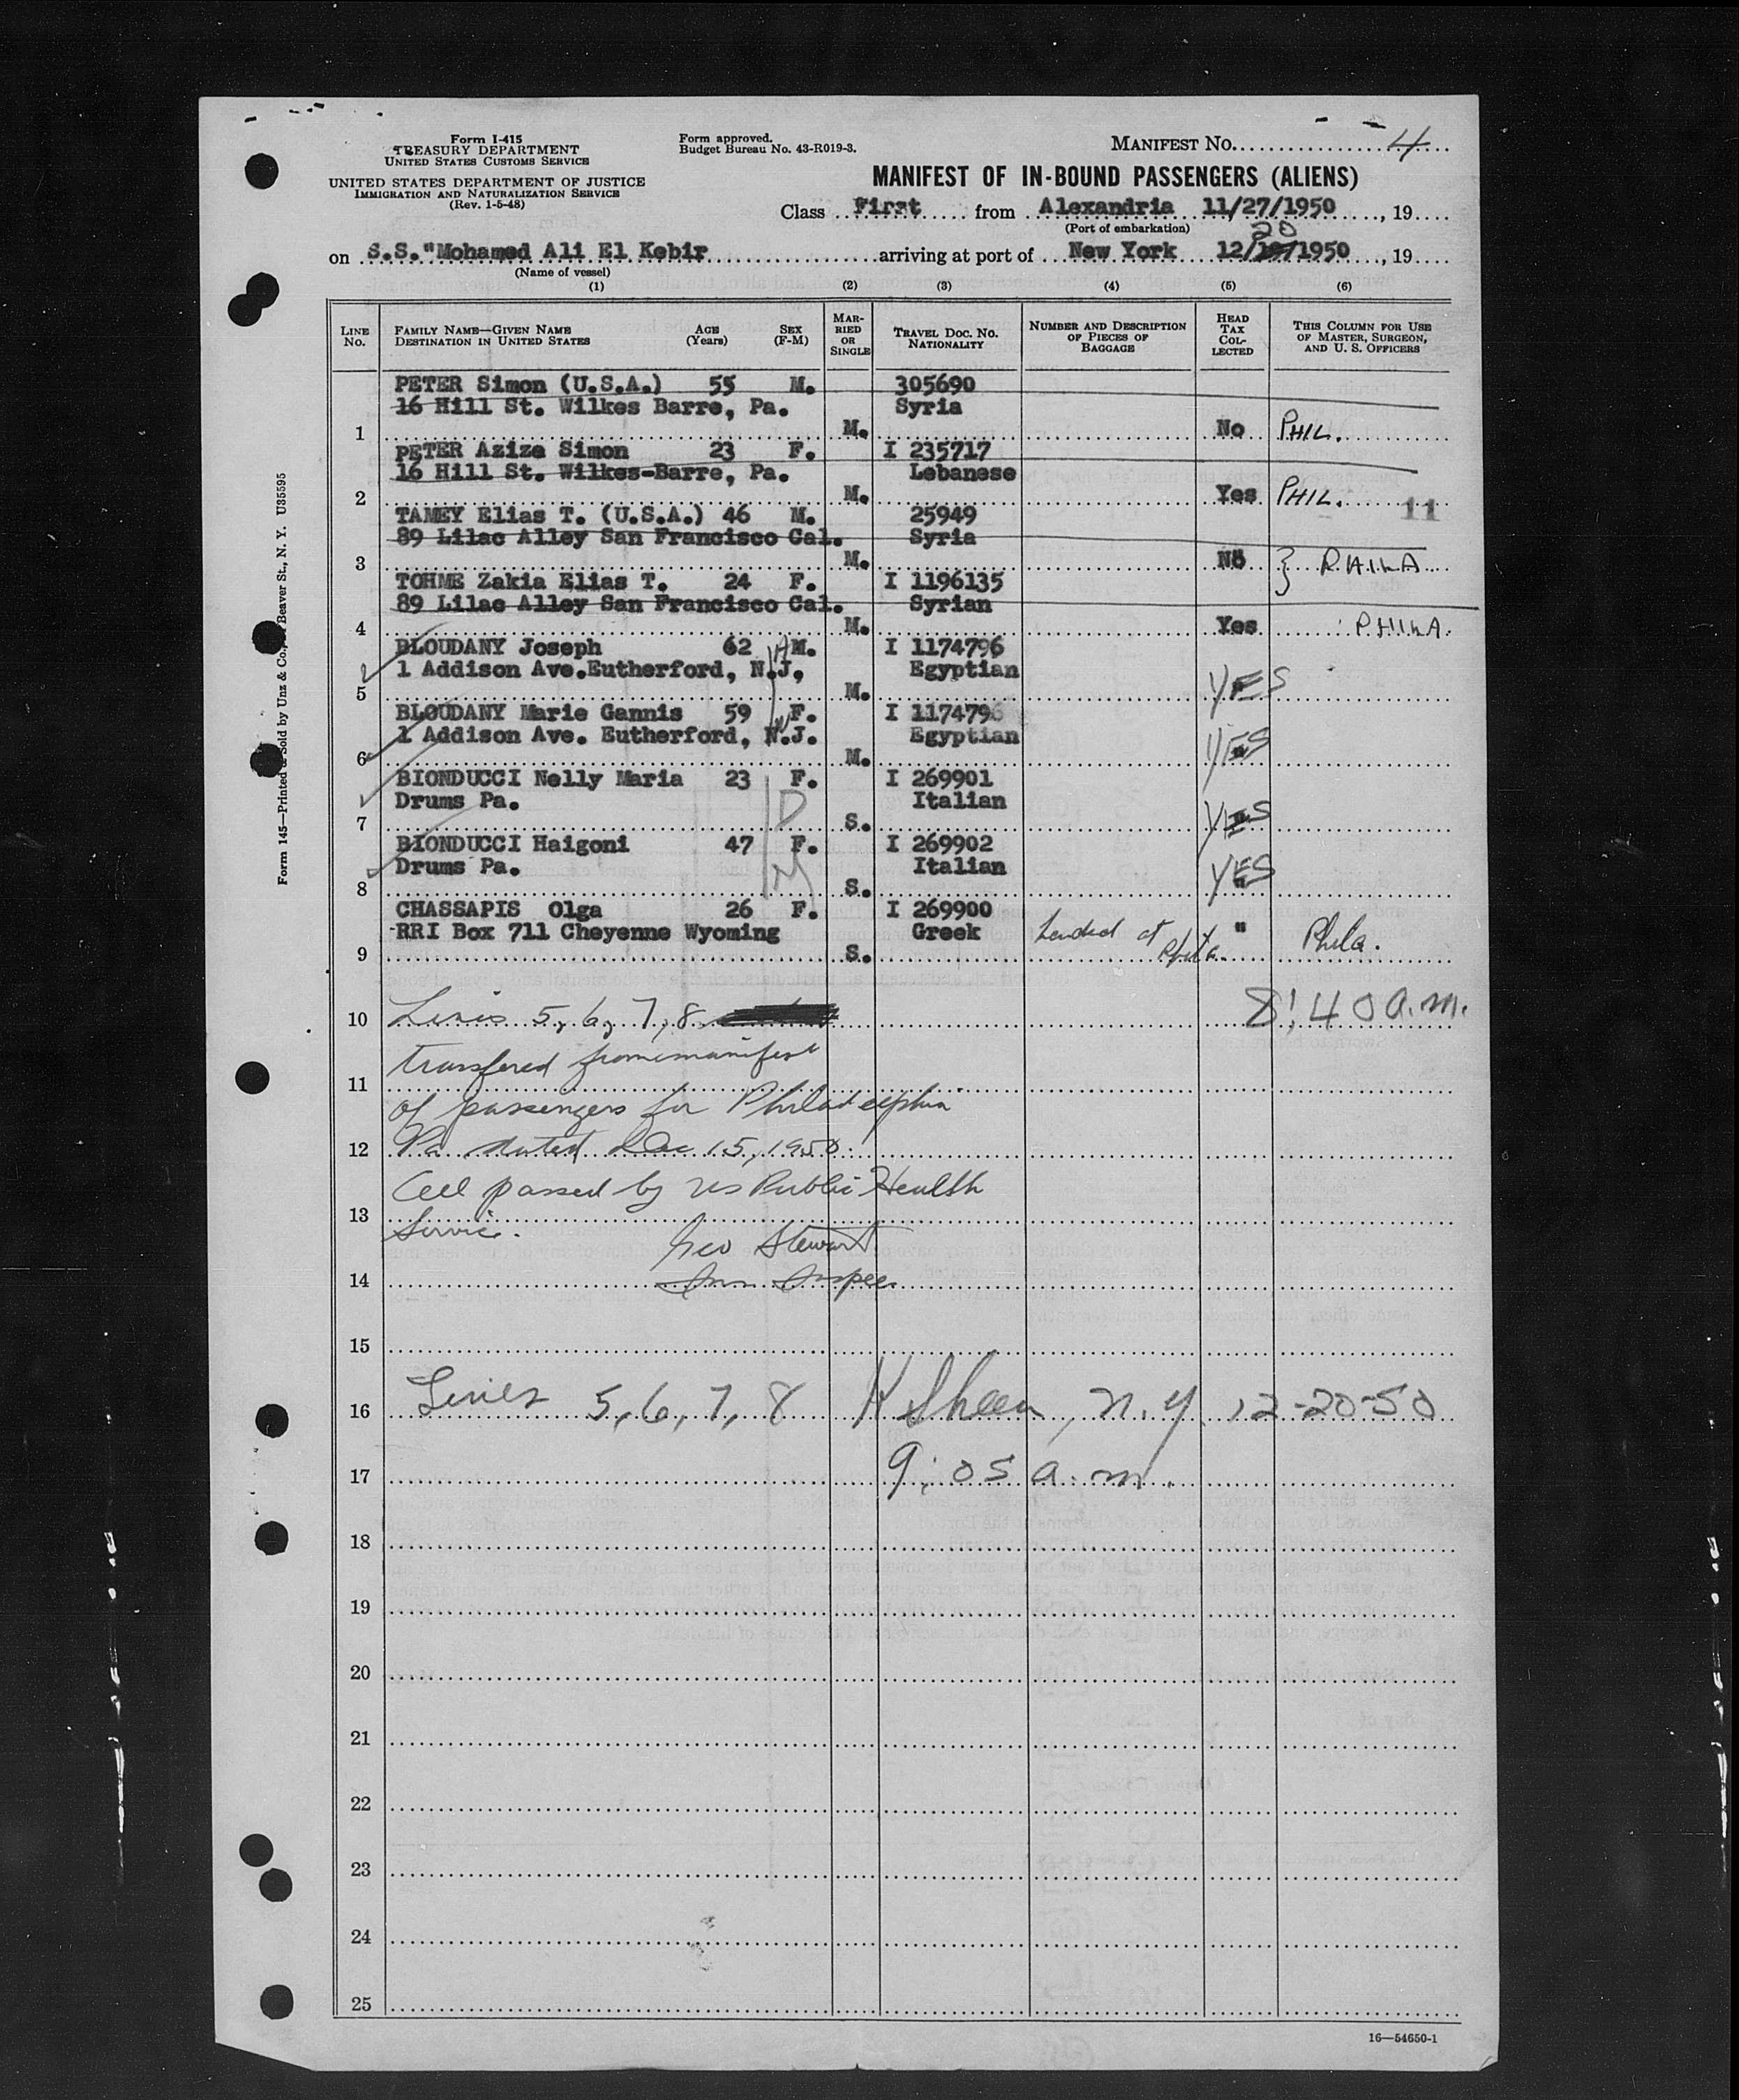 Form I-415
TREASURY DEPARTMENT
UNITED STATES CUSTOMS SERVICE
UNITED STATES DEPARTMENT OF JUSTICE
IMMIGRATION AND NATURALIZATION SERVICE
(Rev. 1-5-48)
Form approved.
Budget Bureau No. 43-R019-3.
MANIFEST No. 4
MANIFEST OF IN-BOUND PASSENGERS (ALIENS)
Class First from Alexandria 11/27/1950, 19
(Port of embarkation)
20
on S.S."Mohamed Ali El Kebir arriving at port of New York 12/ /1950, 19
(Name of vessel)
(1) (2) (3) (4) (5) (6)
LINE No. FAMILY NAME—GIVEN NAME DESTINATION IN UNITED STATES AGE (Years) SEX (F-M) MARRIED OR SINGLE TRAVEL DOC. NO. NATIONALITY NUMBER AND DESCRIPTION OF PIECES OF BAGGAGE HEAD TAX COLLECTED THIS COLUMN FOR USE OF MASTER, SURGEON, AND U. S. OFFICERS
PETER Simon (U.S.A.) 55 M. 305690
16 Hill St. Wilkes Barre, Pa. Syria
1 M. No PHIL.
PETER Azize Simon 23 F. I 235717
16 Hill St. Wilkes-Barre, Pa. Lebanese
2 M. Yes PHIL. 11
TAMEY Elias T. (U.S.A.) 46 M. 25949
89 Lilac Alley San Francisco Cal. Syria
3 M. No PHILA
TOHME Zakia Elias T. 24 F. I 1196135
89 Lilac Alley San Francisco Cal. Syrian
4 M. Yes PHILA.
BLOUDANY Joseph 62 H M. I 1174796
1 Addison Ave.Eutherford, N.J, Egyptian
5 M. YES
BLOUDANY Marie Gannis 59 W F. I 1174796
1 Addison Ave. Eutherford, N.J. Egyptian
6 M. YES
BIONDUCCI Nelly Maria 23 F. I 269901
Drums Pa. D Italian
7 S. YES
BIONDUCCI Haigoni 47 F. I 269902
Drums Pa. M Italian
8 S. YES
CHASSAPIS Olga 26 F. I 269900
RRI Box 711 Cheyenne Wyoming Greek Landed at Phila. " Phila.
9 S.
10 Lines 5, 6, 7, 8 8:40 a.m.
transfered from manifest
11
of passengers for Philadelphia
12 Pa dated Dec 15, 1950.
All passed by US Public Health
13
Servic.
Geo Stewart
14 Imm Inspec
15
16 Lines 5, 6, 7, 8 K Sheen, N.Y. 12-20-50
17 9:05 a.m.
18
19
20
21
22
23
24
25
16—54650-1
Form 145—Printed & Sold by Unz & Co., Beaver St., N. Y. U85595